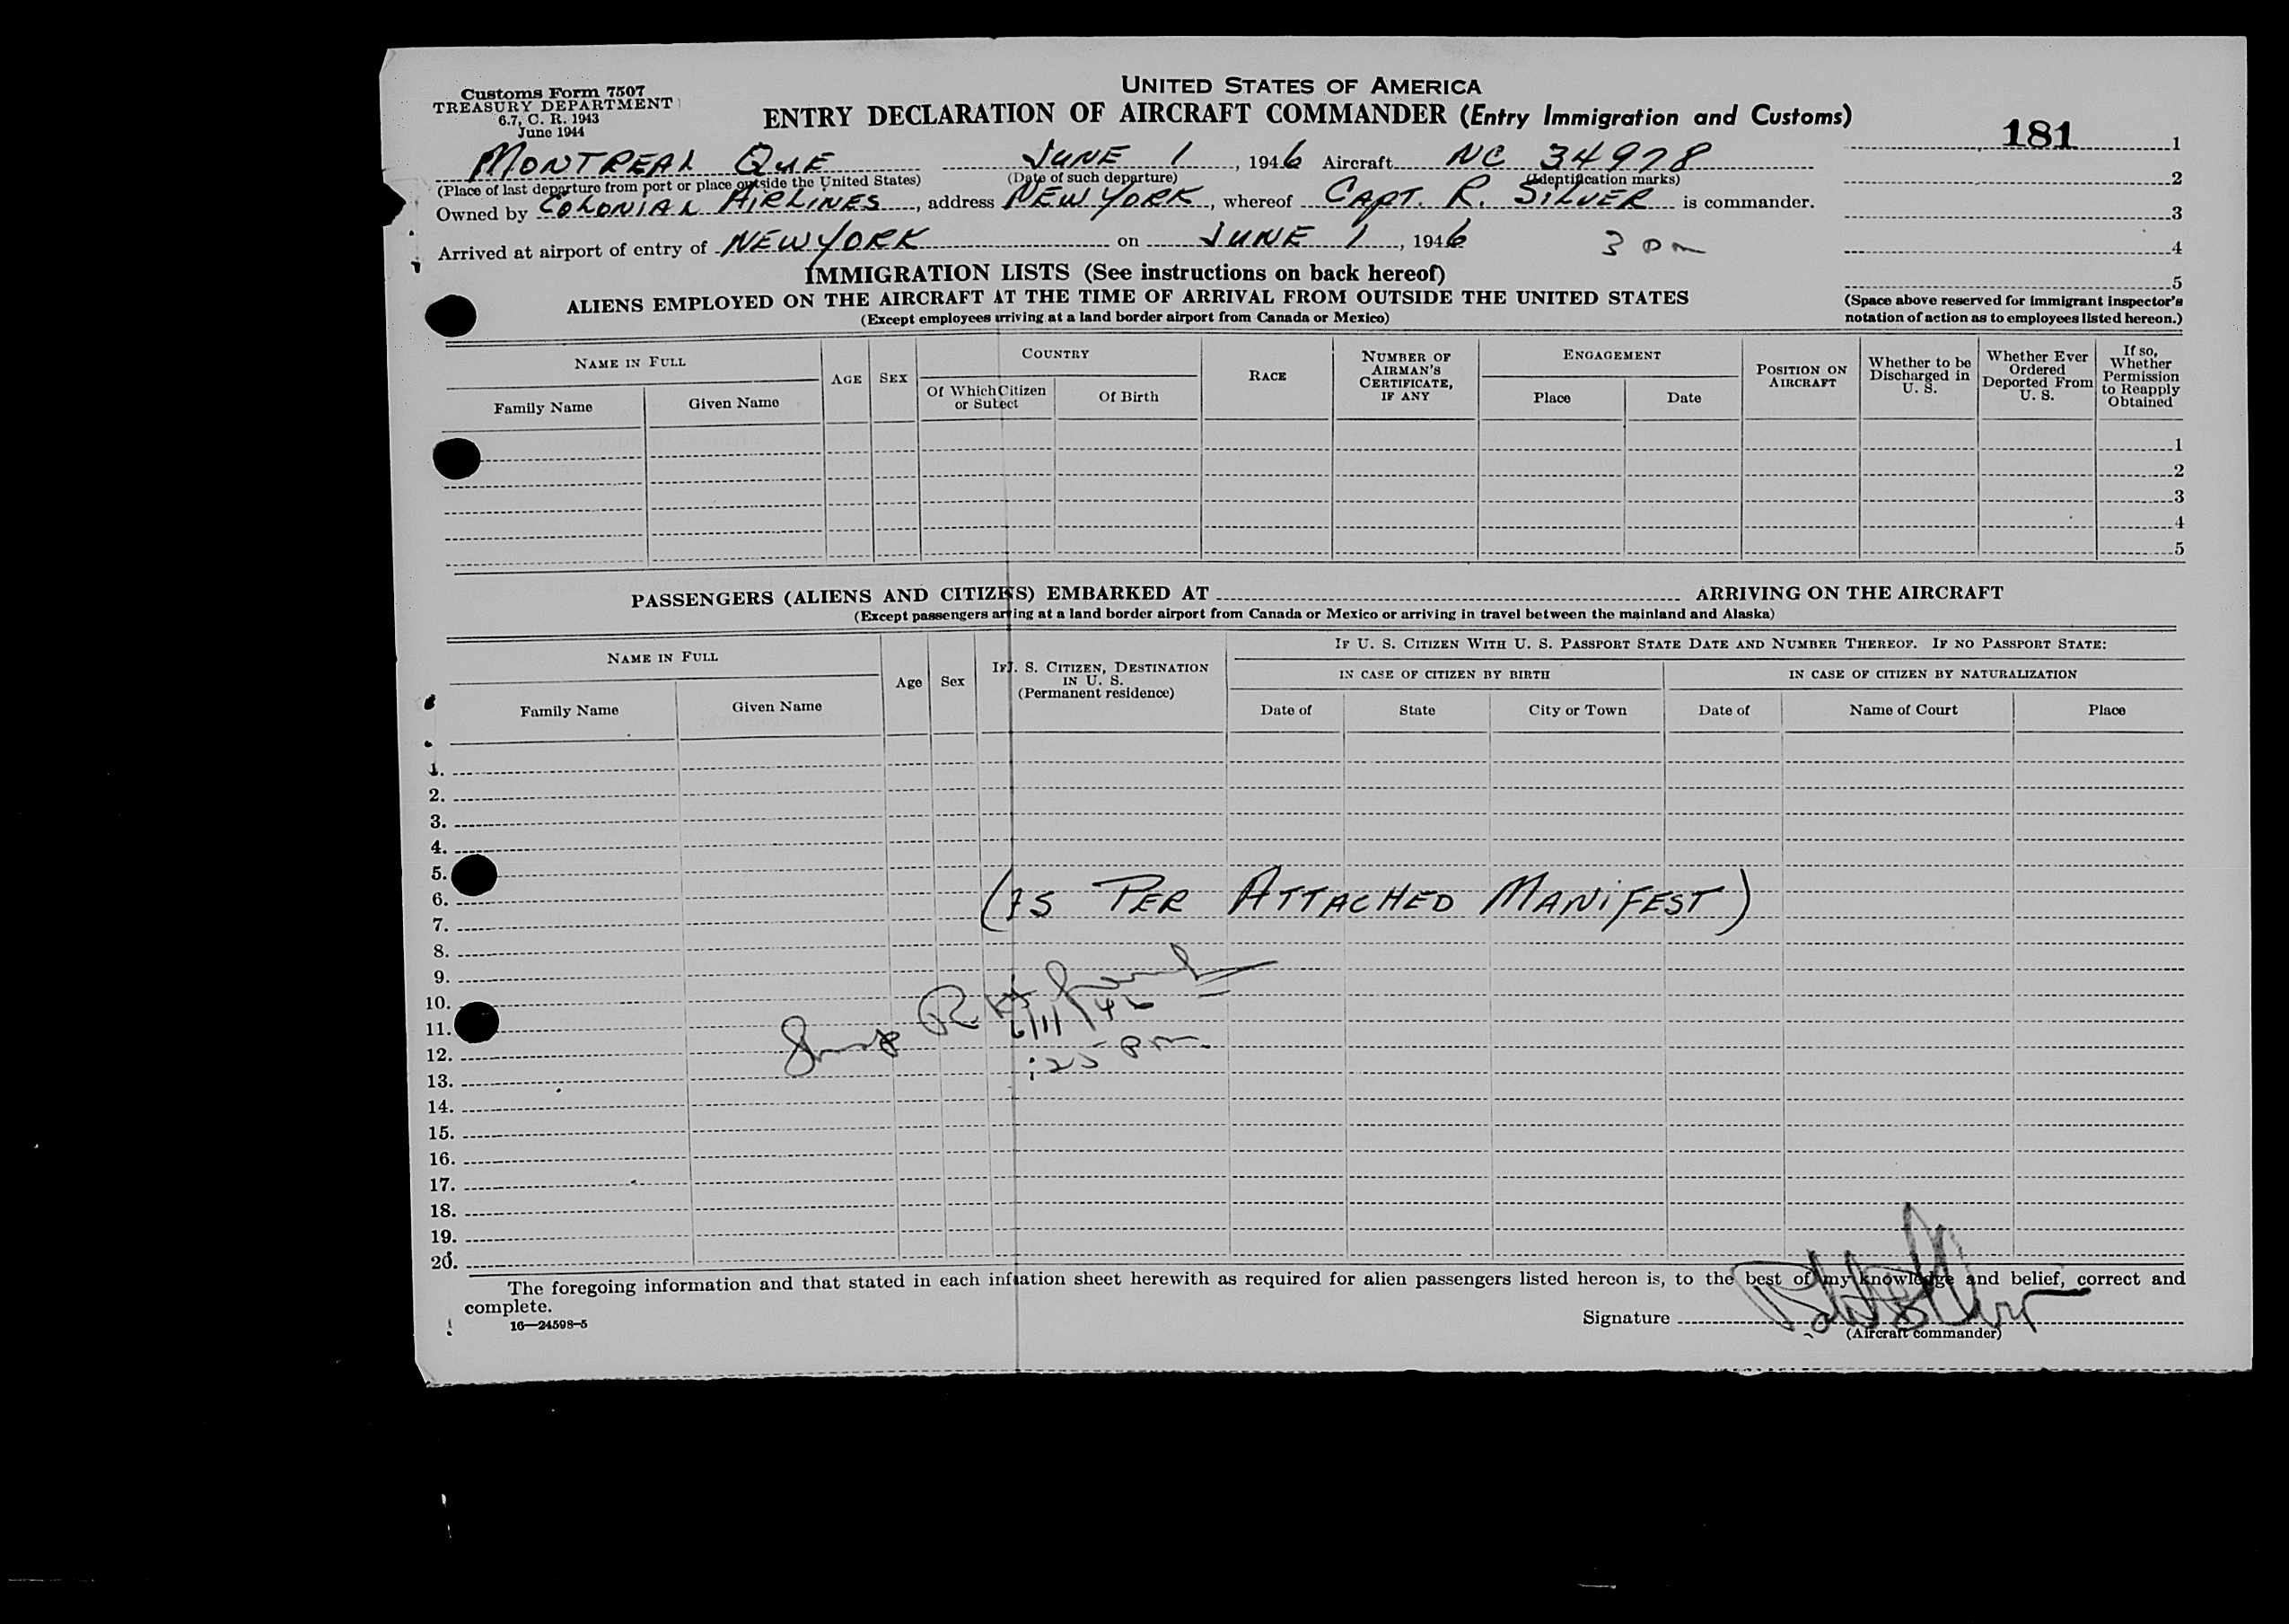 Customs Form 7507
TREASURY DEPARTMENT
6.7, C. R. 1943
June 1944
UNITED STATES OF AMERICA
ENTRY DECLARATION OF AIRCRAFT COMMANDER (Entry Immigration and Customs)
181 1
MONTREAL QUE JUNE 1, 1946 Aircraft NC 34978
(Place of last departure from port or place outside the United States) (Date of such departure) (Identification marks)
2
Owned by COLONIAL AIRLINES, address NEW YORK, whereof CAPT. R. SILVER is commander.
3
Arrived at airport of entry of NEW YORK on JUNE 1, 1946 3 pm
4
IMMIGRATION LISTS (See instructions on back hereof)
5
ALIENS EMPLOYED ON THE AIRCRAFT AT THE TIME OF ARRIVAL FROM OUTSIDE THE UNITED STATES
(Except employees arriving at a land border airport from Canada or Mexico)
(Space above reserved for immigrant inspector's
notation of action as to employees listed hereon.)
NAME IN FULL
Family Name
Given Name
AGE
SEX
COUNTRY
Of Which Citizen
or Subect
Of Birth
RACE
NUMBER OF
AIRMAN'S
CERTIFICATE,
IF ANY
ENGAGEMENT
Place
Date
POSITION ON
AIRCRAFT
Whether to be
Discharged in
U. S.
Whether Ever
Ordered
Deported From
U. S.
If so,
Whether
Permission
to Reapply
Obtained
1
2
3
4
5
PASSENGERS (ALIENS AND CITIZENS) EMBARKED AT ARRIVING ON THE AIRCRAFT
(Except passengers arriving at a land border airport from Canada or Mexico or arriving in travel between the mainland and Alaska)
NAME IN FULL
Family Name
Given Name
Age
Sex
IF U. S. CITIZEN, DESTINATION
IN U. S.
(Permanent residence)
IF U. S. CITIZEN WITH U. S. PASSPORT STATE DATE AND NUMBER THEREOF. IF NO PASSPORT STATE:
IN CASE OF CITIZEN BY BIRTH
Date of
State
City or Town
IN CASE OF CITIZEN BY NATURALIZATION
Date of
Name of Court
Place
1.
2.
3.
4.
5.
6.
(AS PER ATTACHED MANIFEST)
7.
8.
9.
10.
11.
6/11/46
12.
:25 pm
13.
14.
15.
16.
17.
18.
19.
20.
The foregoing information and that stated in each infation sheet herewith as required for alien passengers listed hereon is, to the best of my knowledge and belief, correct and
complete.
Signature
16—24598-5
(Aircraft commander)